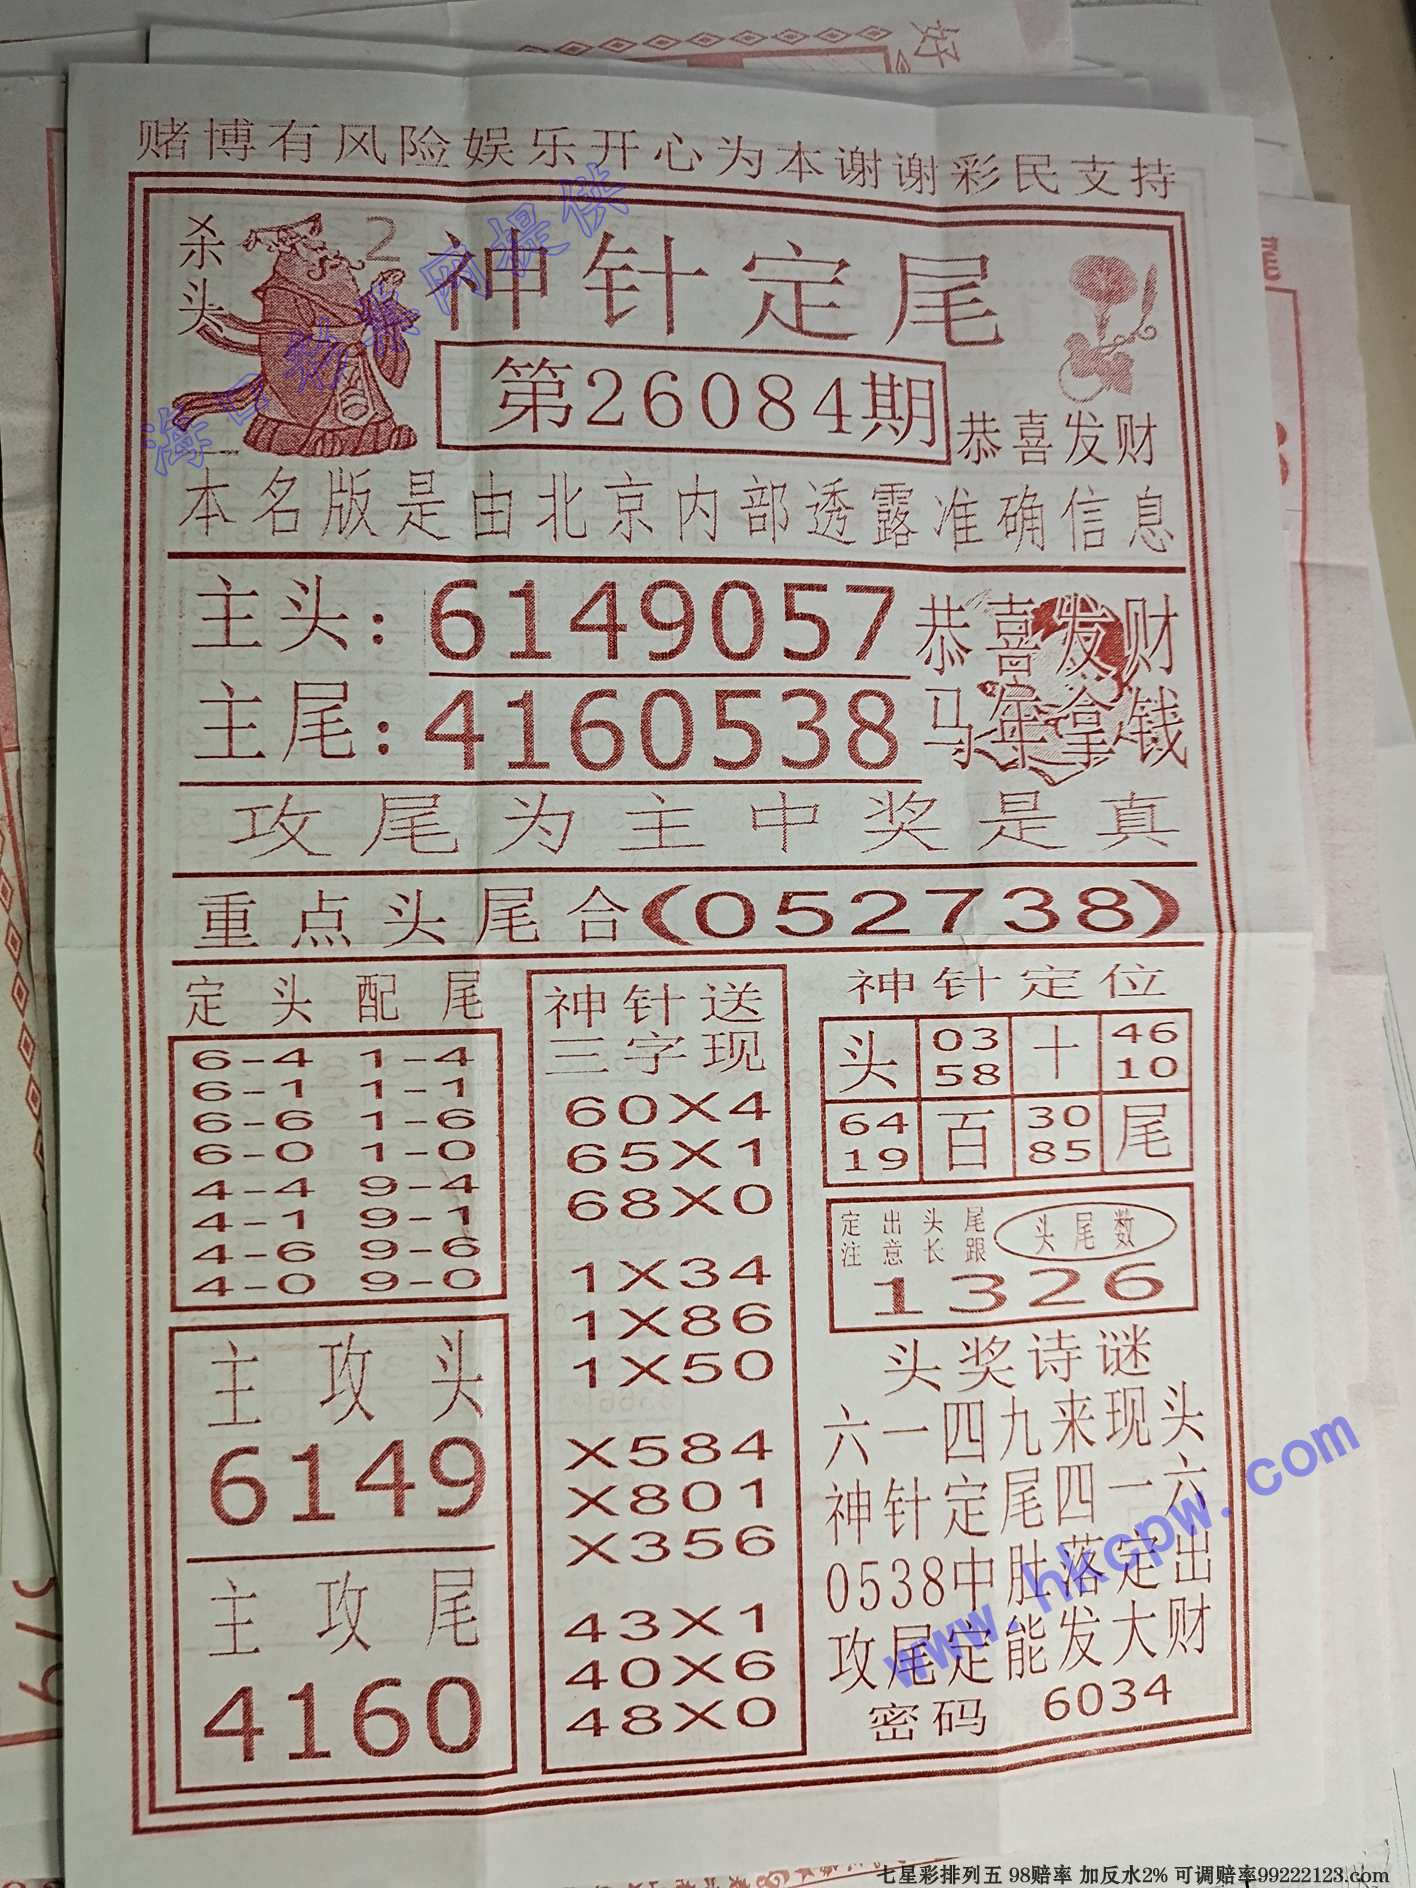 好
赌博有风险娱乐开心为本谢谢彩民支持
杀头
2
神针定尾
第26084期
恭喜发财
海口彩票网提供
本名版是由北京内部透露准确信息
主头：6149057
恭喜发财
主尾：4160538
马年拿钱
攻尾为主中奖是真
重点头尾合(052738)
定头配尾
6-4 1-4
6-1 1-1
6-6 1-6
6-0 1-0
4-4 9-4
4-1 9-1
4-6 9-6
4-0 9-0
主攻头
6149
主攻尾
4160
神针送
三字现
60X4
65X1
68X0
1X34
1X86
1X50
X584
X801
X356
43X1
40X6
48X0
神针定位
头 03 十 46
58 10
64 百 30 尾
19 85
定出头尾
注意长跟
头尾数
1326
头奖诗谜
六一四九来现头
神针定尾四一六
0538中肚落定出
攻尾定能发大财
密码 6034
www.hkcpw.com
七星彩排列五 98赔率 加反水2% 可调赔率99222123.com